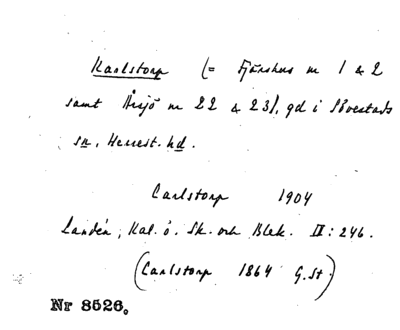 Karlstorp (= Fjärshus nr 1 & 2
samt Årsjö nr 22 & 23), gd i Sövestads
sn, Herrest. hd.
Carlstorp 1904
Landén, Kal. ö. Sk. och Blek. II: 246.
(Carlstorp 1864 G.St.)
Nr 8526.